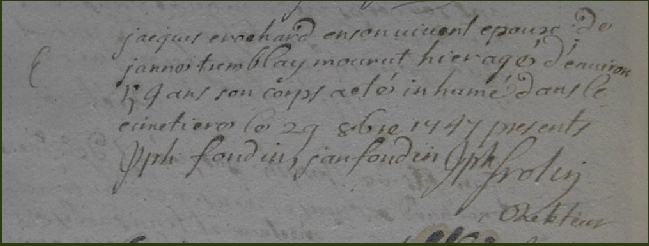 jacquis erochard enson vivent epoux de
janne tremblay mourut hier agé d'environ
59 ans son corps a eté in humé dans le
cimetiere le 29 8bre 1747 presents
Jph foudin, jan foudin Jph frolin
Rekteur